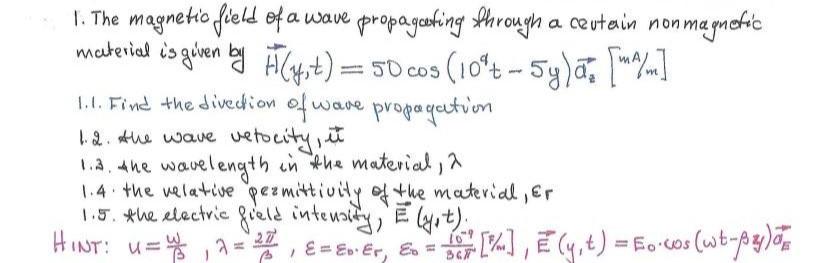 1. The magnetic field of a wave propagating through a certain nonmagnetic
material is given by H⃗(y,t) = 50 cos (10⁹t - 5y) a⃗z [mA/m]
1.1. Find the direction of wave propagation
1.2. the wave velocity, u⃗
1.3. the wavelength in the material, λ
1.4. the relative permittivity of the material, εr
1.5. the electric field intensity, E⃗ (y,t).
HINT: u = ω/β, λ = 2π/β, ε = ε₀·εr, ε₀ = 10⁻⁹/36π [F/m], E⃗ (y,t) = E₀·cos (ωt-βy) a⃗E